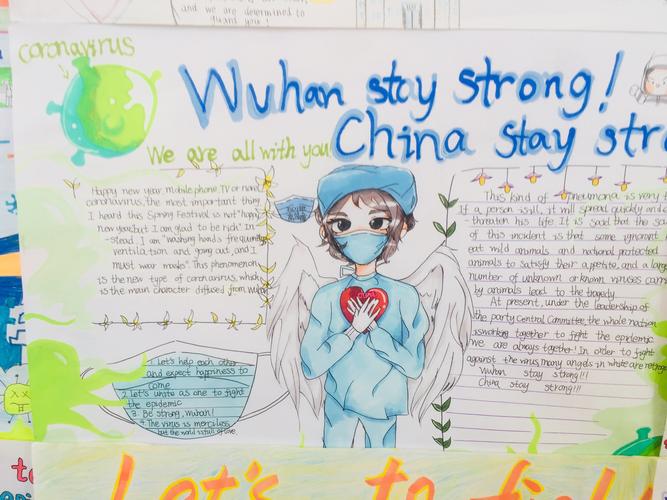 and we are determined to
guard you!
coronavirus
Wuhan stay strong!
China stay str
We are all with you
Happy new year. Mobile phone, TV or news
coronavirus, the most important thing
I heard this Spring Festival is not "happy
new year, but I am glad to be rich". In-
-stead, I am "washing hands frequently
ventilation and going out, and I
must wear masks". This phenomenon
is the new type of coronavirus, which
is the main character diffused from Wuhan
1. Let's help each other
and expect happiness to
come
2. Let's unite as one to fight
the epidemic
3. Be strong, Wuhan!
4. The virus is merciless,
but the world is full of love.
This kind of pneumonia is very
If a person is ill, it will spread quickly and
threaten his life. It is said that the
of this incident is that some ignorant
eat wild animals and national protected
animals to satisfy their appetite, and a large
number of unknown or known viruses carr
by animals lead to the tragedy
At present, under the leadership of
the party Central Committee, the whole nation
is working together to fight the epidemic
we are always together! In order to fight
against the virus, many angels in white are
Wuhan stay strong!!!
China stay strong!!!
Let's to fight